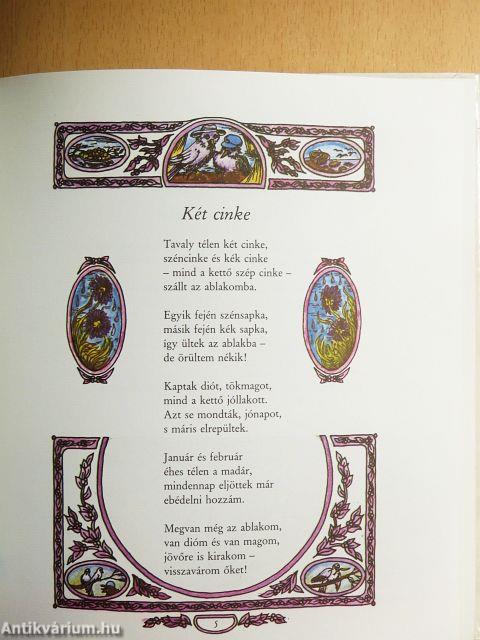 Két cinke
Tavaly télen két cinke,
széncinke és kék cinke
– mind a kettő szép cinke –
szállt az ablakomba.
Egyik fején szénsapka,
másik fején kék sapka,
így ültek az ablakba –
de örültem nékik!
Kaptak diót, tökmagot,
mind a kettő jóllakott.
Azt se mondták, jónapot,
s máris elrepültek.
Január és február
éhes télen a madár,
mindennap eljöttek már
ebédelni hozzám.
Megvan még az ablakom,
van dióm és van magom,
jövőre is kirakom –
visszavárom őket!
5
Antikvárium.hu